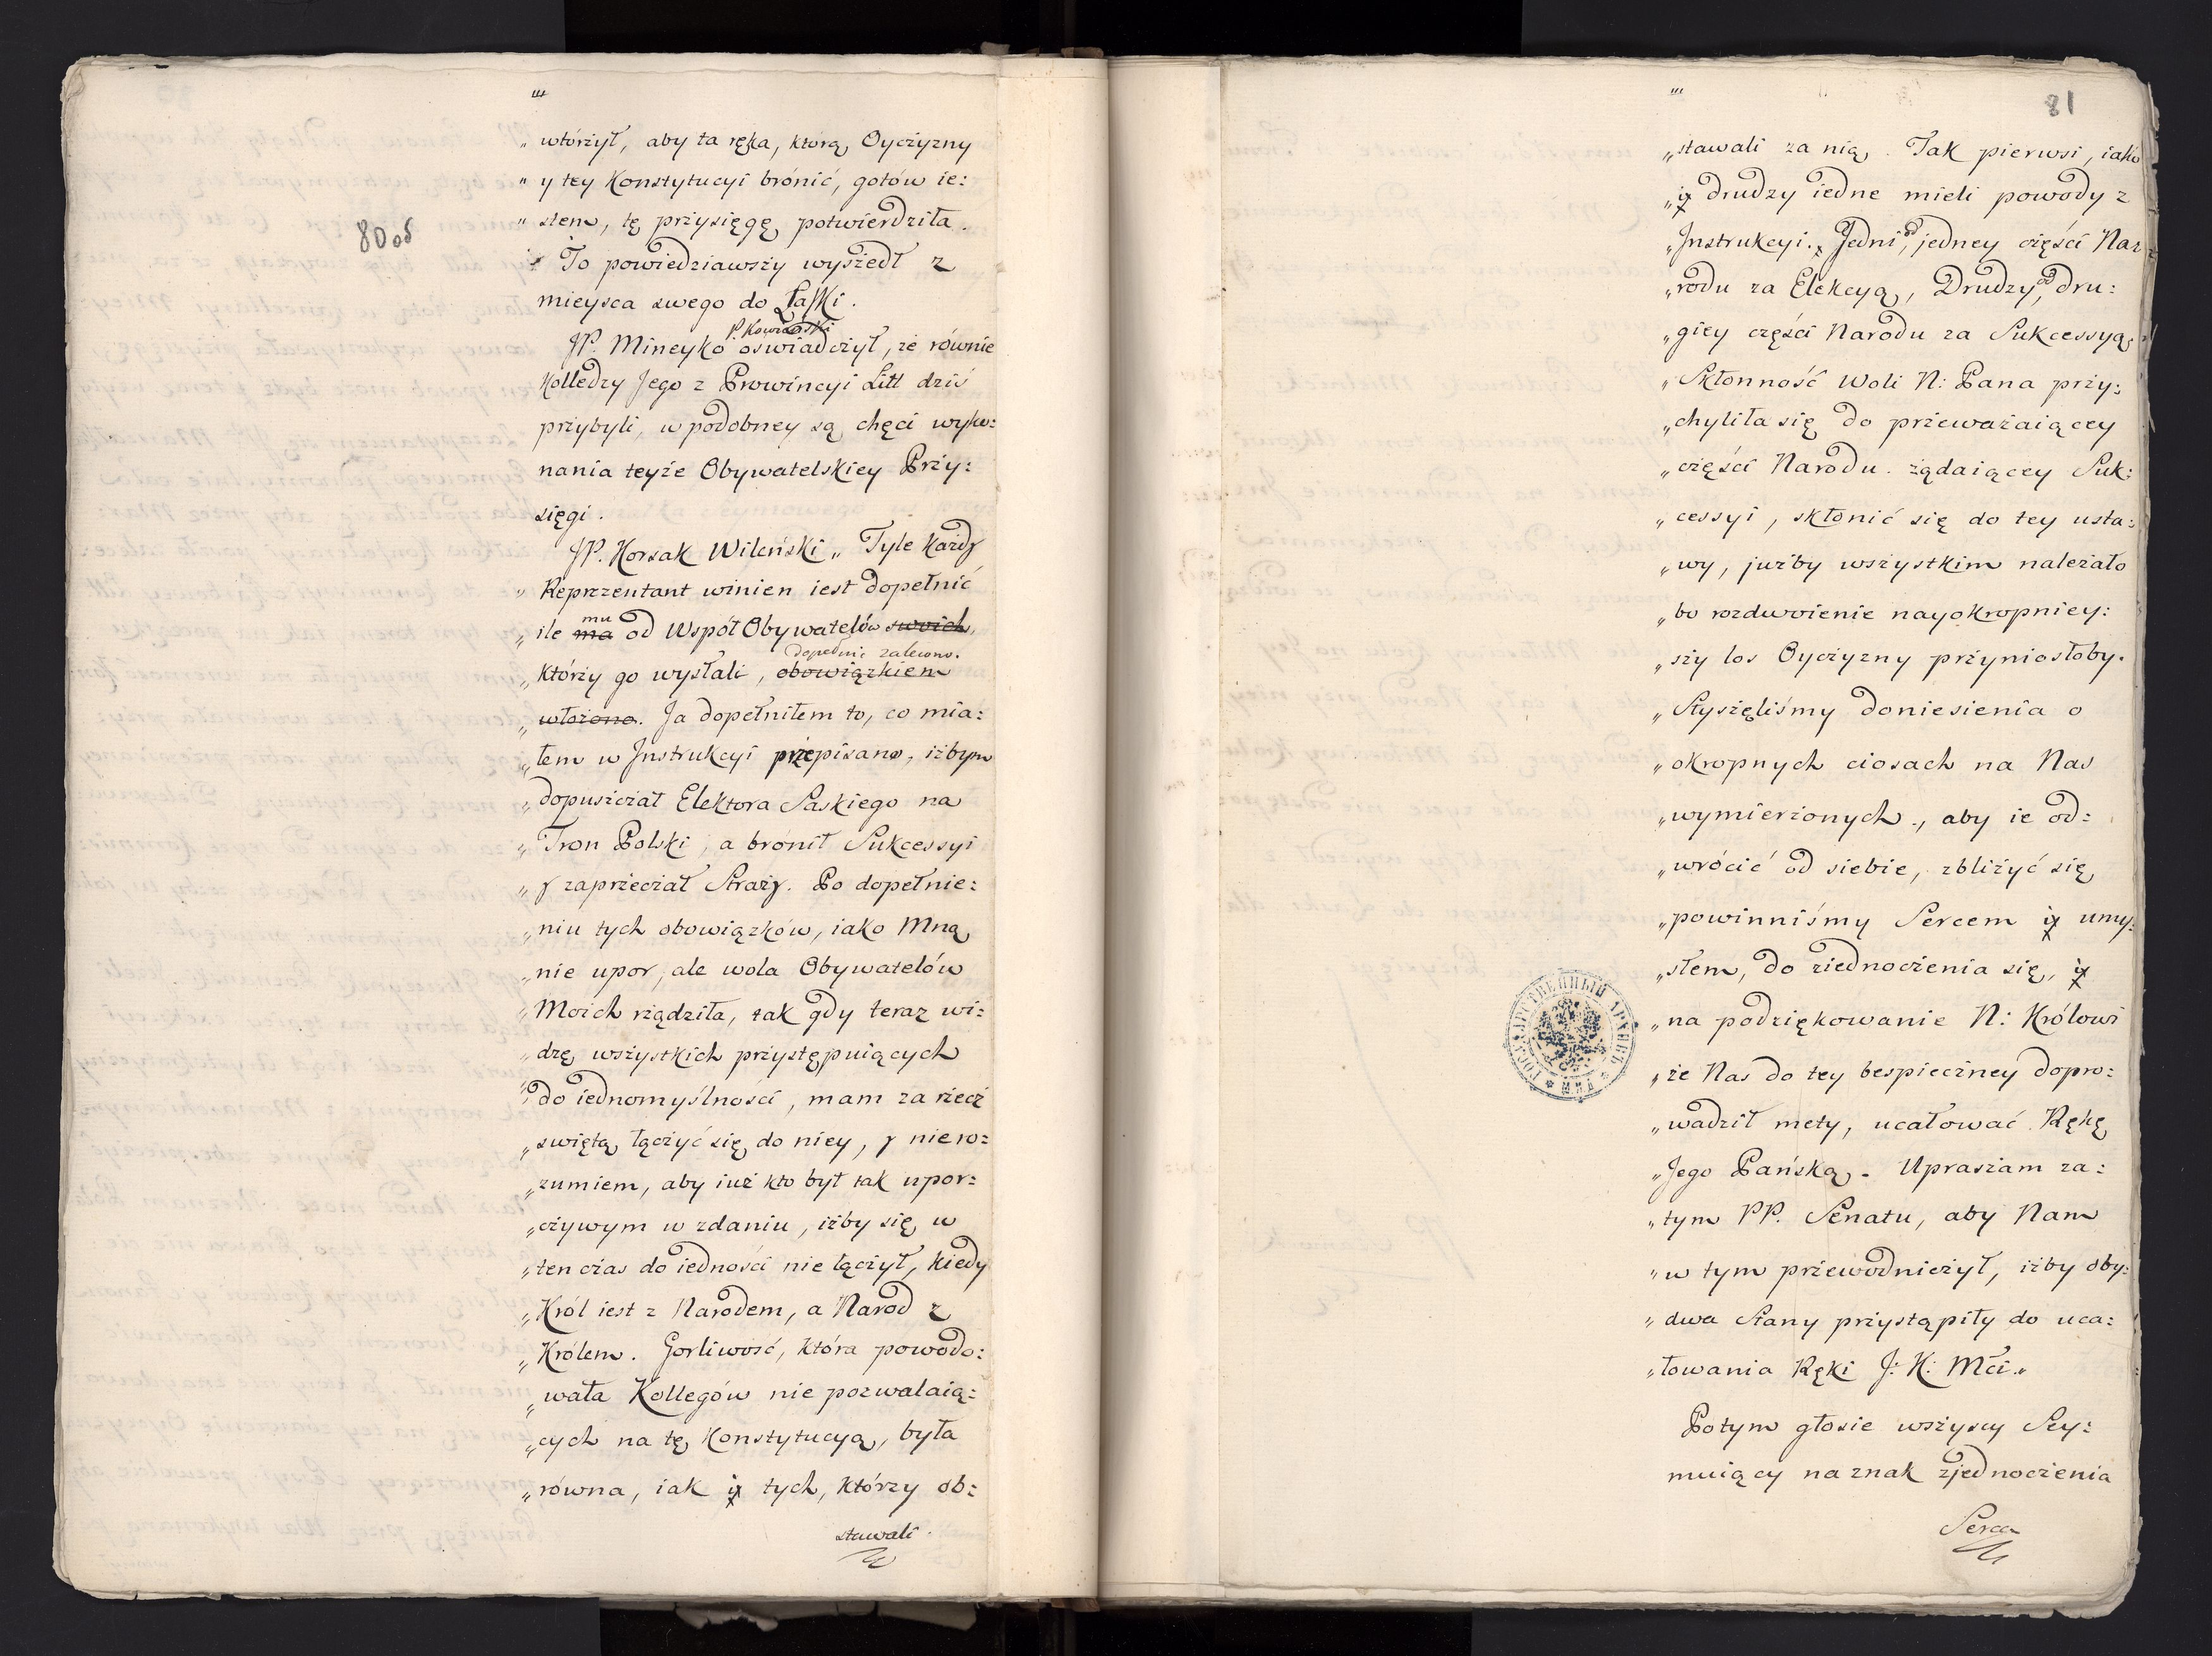 80 об
„ wtórżył, aby ta ręka, którą Oyczyzny
„ y tey Konstytucyi brónić, gotów ie:
„ stem, tę przysięgę potwierdziła.
To powiedziawszy wyszedł z
mieysca swego do Łaſki.
P. Kowieński
JP. Mineyko oswiadczył, że równie
Kolledzy Jego z Prowincyi Litt dziś
przybyli, w podobney są chęci wyko:
nania teyże Obywatelskiey Przy:
sięgi.
JP. Korsak Wileński „ Tyle każdy
„ Reprezentant winien iest dopełnić
mu
„ ile ma od Współ Obywatelów swoich,
dopełnić zalecono.
„ którzy go wysłali, obowiązkiem
„ włożono. Ja dopełniłem to, co mia:
„ łem w Instrukcyi przepisano, iżbym
„ dopuszczał Elektora Saskiego na
„ Tron Polski, a brónił Sukcessyi
„ y zaprzeczał Straży. Po dopełnie:
„ niu tych obowiązków, iako Mną
„ nie upor, ale wola Obywatelów
„ Moich rządziła, tak gdy teraz wi:
„ dzę wszystkich przystępuiących
„ do iednomyślności, mam za rzecz
„ swiętą łączyć się do niey, y niero:
„ zumiem, aby iuż kto był tak upor:
„ czywym w zdaniu, iżby się w
„ ten czas do iedności nie łączył, kiedy
„ Król iest z Narodem, a Narod z
„ Królem. Gorliwość, która powodo:
„ wała Kollegów nie pozwalaią:
„ cych na tę Konstytucyą, była
„ równa, iak y tych, którzy ob:
stawali.
81
„ stawali za nią. Tak pierwsi, iako
„ y drudzy iedne mieli powody z
od
„ Instrukcyi. Jedni, jedney części Na:
od
„ rodu za Elekcyą, Drudzy, dru:
„ giey części Narodu za Sukcessyą.
„ Skłonność Woli N: Pana przy:
„ chyliła się do przeważaiącey
„ części Narodu żądaiącey Suk:
„ cessyi, skłonić się do tey usta:
„ wy, jużby wszystkim należało
„ bo rozdwoienie nayokropniey:
„ szy los Oyczyzny przyniosłoby.
„ Słyszęliśmy doniesienia o
„ okropnych ciosach na Nas
„ wymierzonych, aby ie od:
„ wrócić od siebie, zbliżyć się
„ powinniśmy Sercem y umy:
„ słem, do ziednoczenia się, y
„ na podziękowanie N: Królowi
„ że Nas do tey bespieczney dopro:
„ wadził mety, ucałować Rękę
„ Jego Pańską. Upraszam za:
„ tym PP. Senatu, aby Nam
„ w tym przewodniczył, iżby oby:
„ dwa Stany przystąpiły do uca:
„ łowania Ręki J: K: Mći.„
Potym głosie wszyscy Sey:
muiący na znak zjednoczenia
Serca
ГОСУДАРСТВЕННЫЙ АРХИВЪ